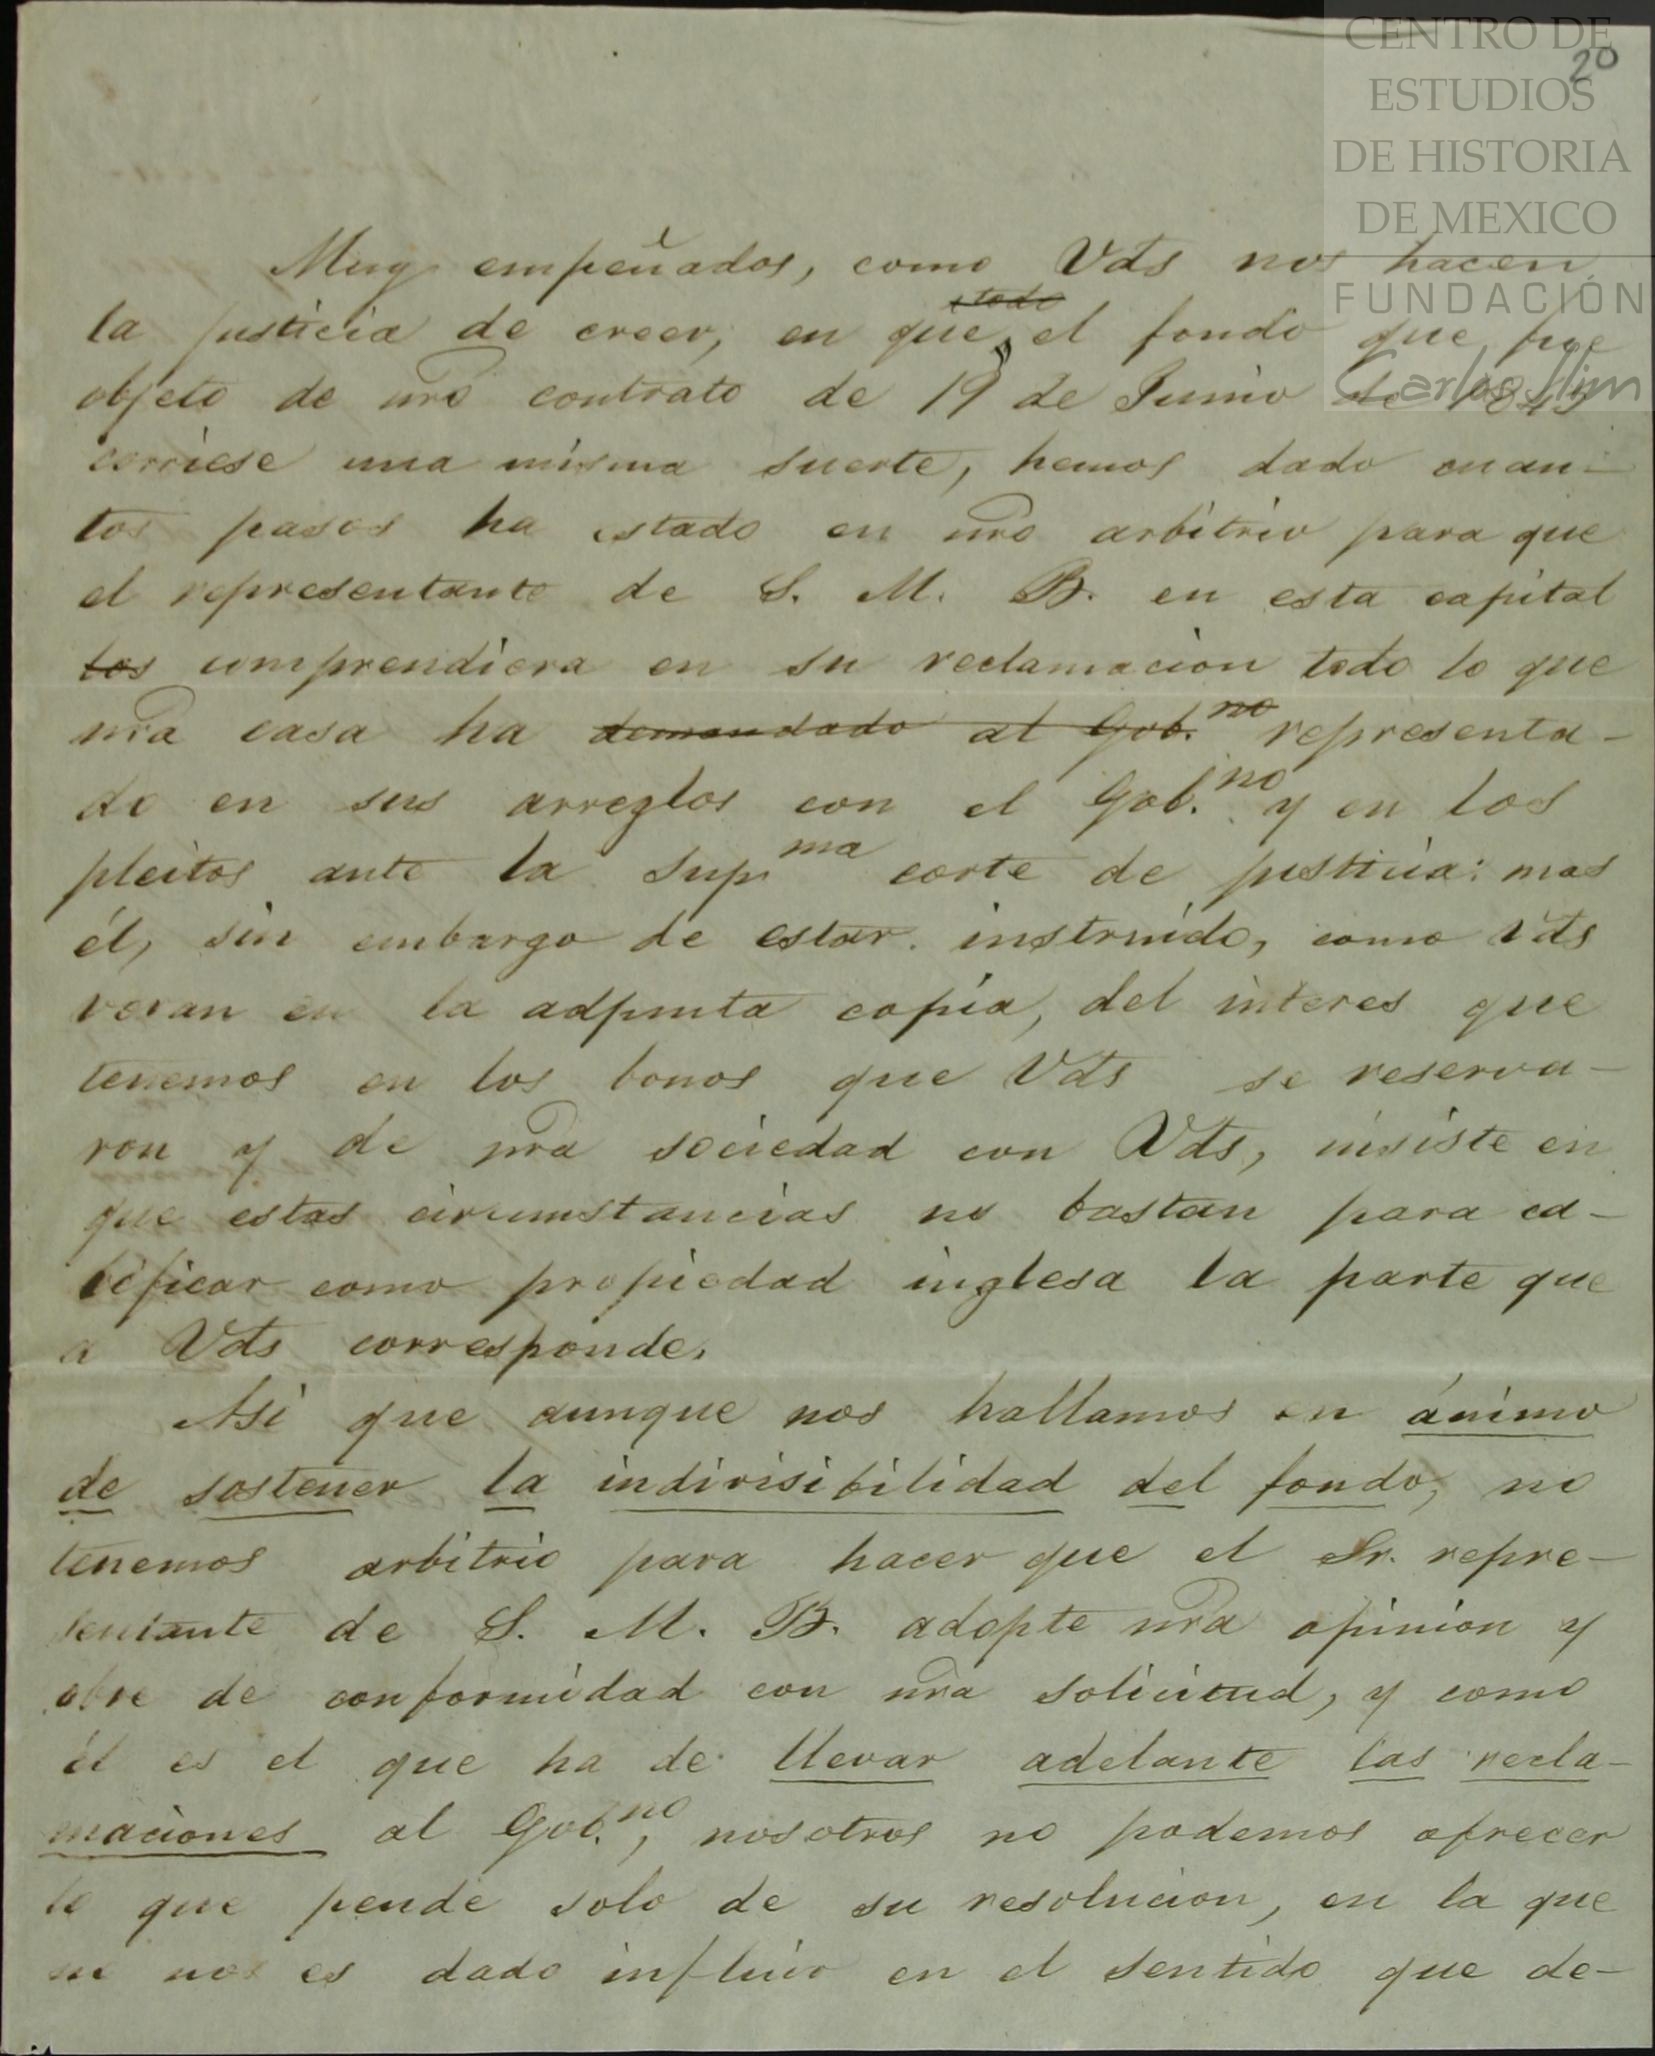 CENTRO DE
ESTUDIOS
DE HISTORIA
DE MEXICO
FUNDACIÓN
Carlos Slim
20
Muy empeñados, como Vds nos hacen
la justicia de creer, en que todo el fondo que fue
objeto de nro contrato de 19 de Junio de
corriese una misma suerte, hemos dado cuan-
tos pasos ha estado en nro arbitrio para que
el representante de S. M. B. en esta capital
los comprendiera en su reclamacion todo lo que
nra casa ha demandado al Gob.no representa-
do en sus arreglos con el Gob.no y en los
pleitos ante la Supma corte de justicia: mas
él, sin embargo de estar instruido, como Vds
veran en la adjunta copia, del interes que
tenemos en los bonos que Vds se reserva-
ron y de nra sociedad con Vds, insiste en
que estas circunstancias no bastan para ca-
lificar como propiedad inglesa la parte que
a Vds corresponde.
Asi que aunque nos hallamos en ánimo
de sostener la indivisibilidad del fondo, no
tenemos arbitrio para hacer que el Sr. repre-
sentante de S. M. B. adopte nra opinion y
obre de conformidad con nra solicitud, y como
él es el que ha de llevar adelante las recla-
maciones al Gob.no, nosotros no podemos ofrecer
lo que pende solo de su resolucion, en la que
no nos es dado influir en el sentido que de-